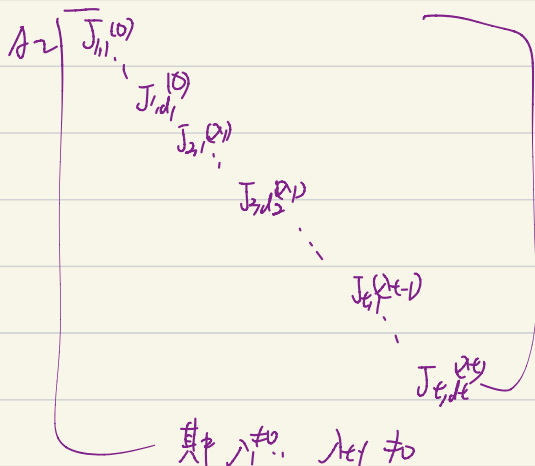 A~
J₁,₁(0)
⋱
J₁,d₁(0)
J₂,₁(λ₁)
⋱
J₂,d₂(λ₁)
⋱
Jₜ,₁(λt-1)
⋱
Jₜ,dₜ(λt)
其中 λ₁≠0 ‥ λt-1 ≠0